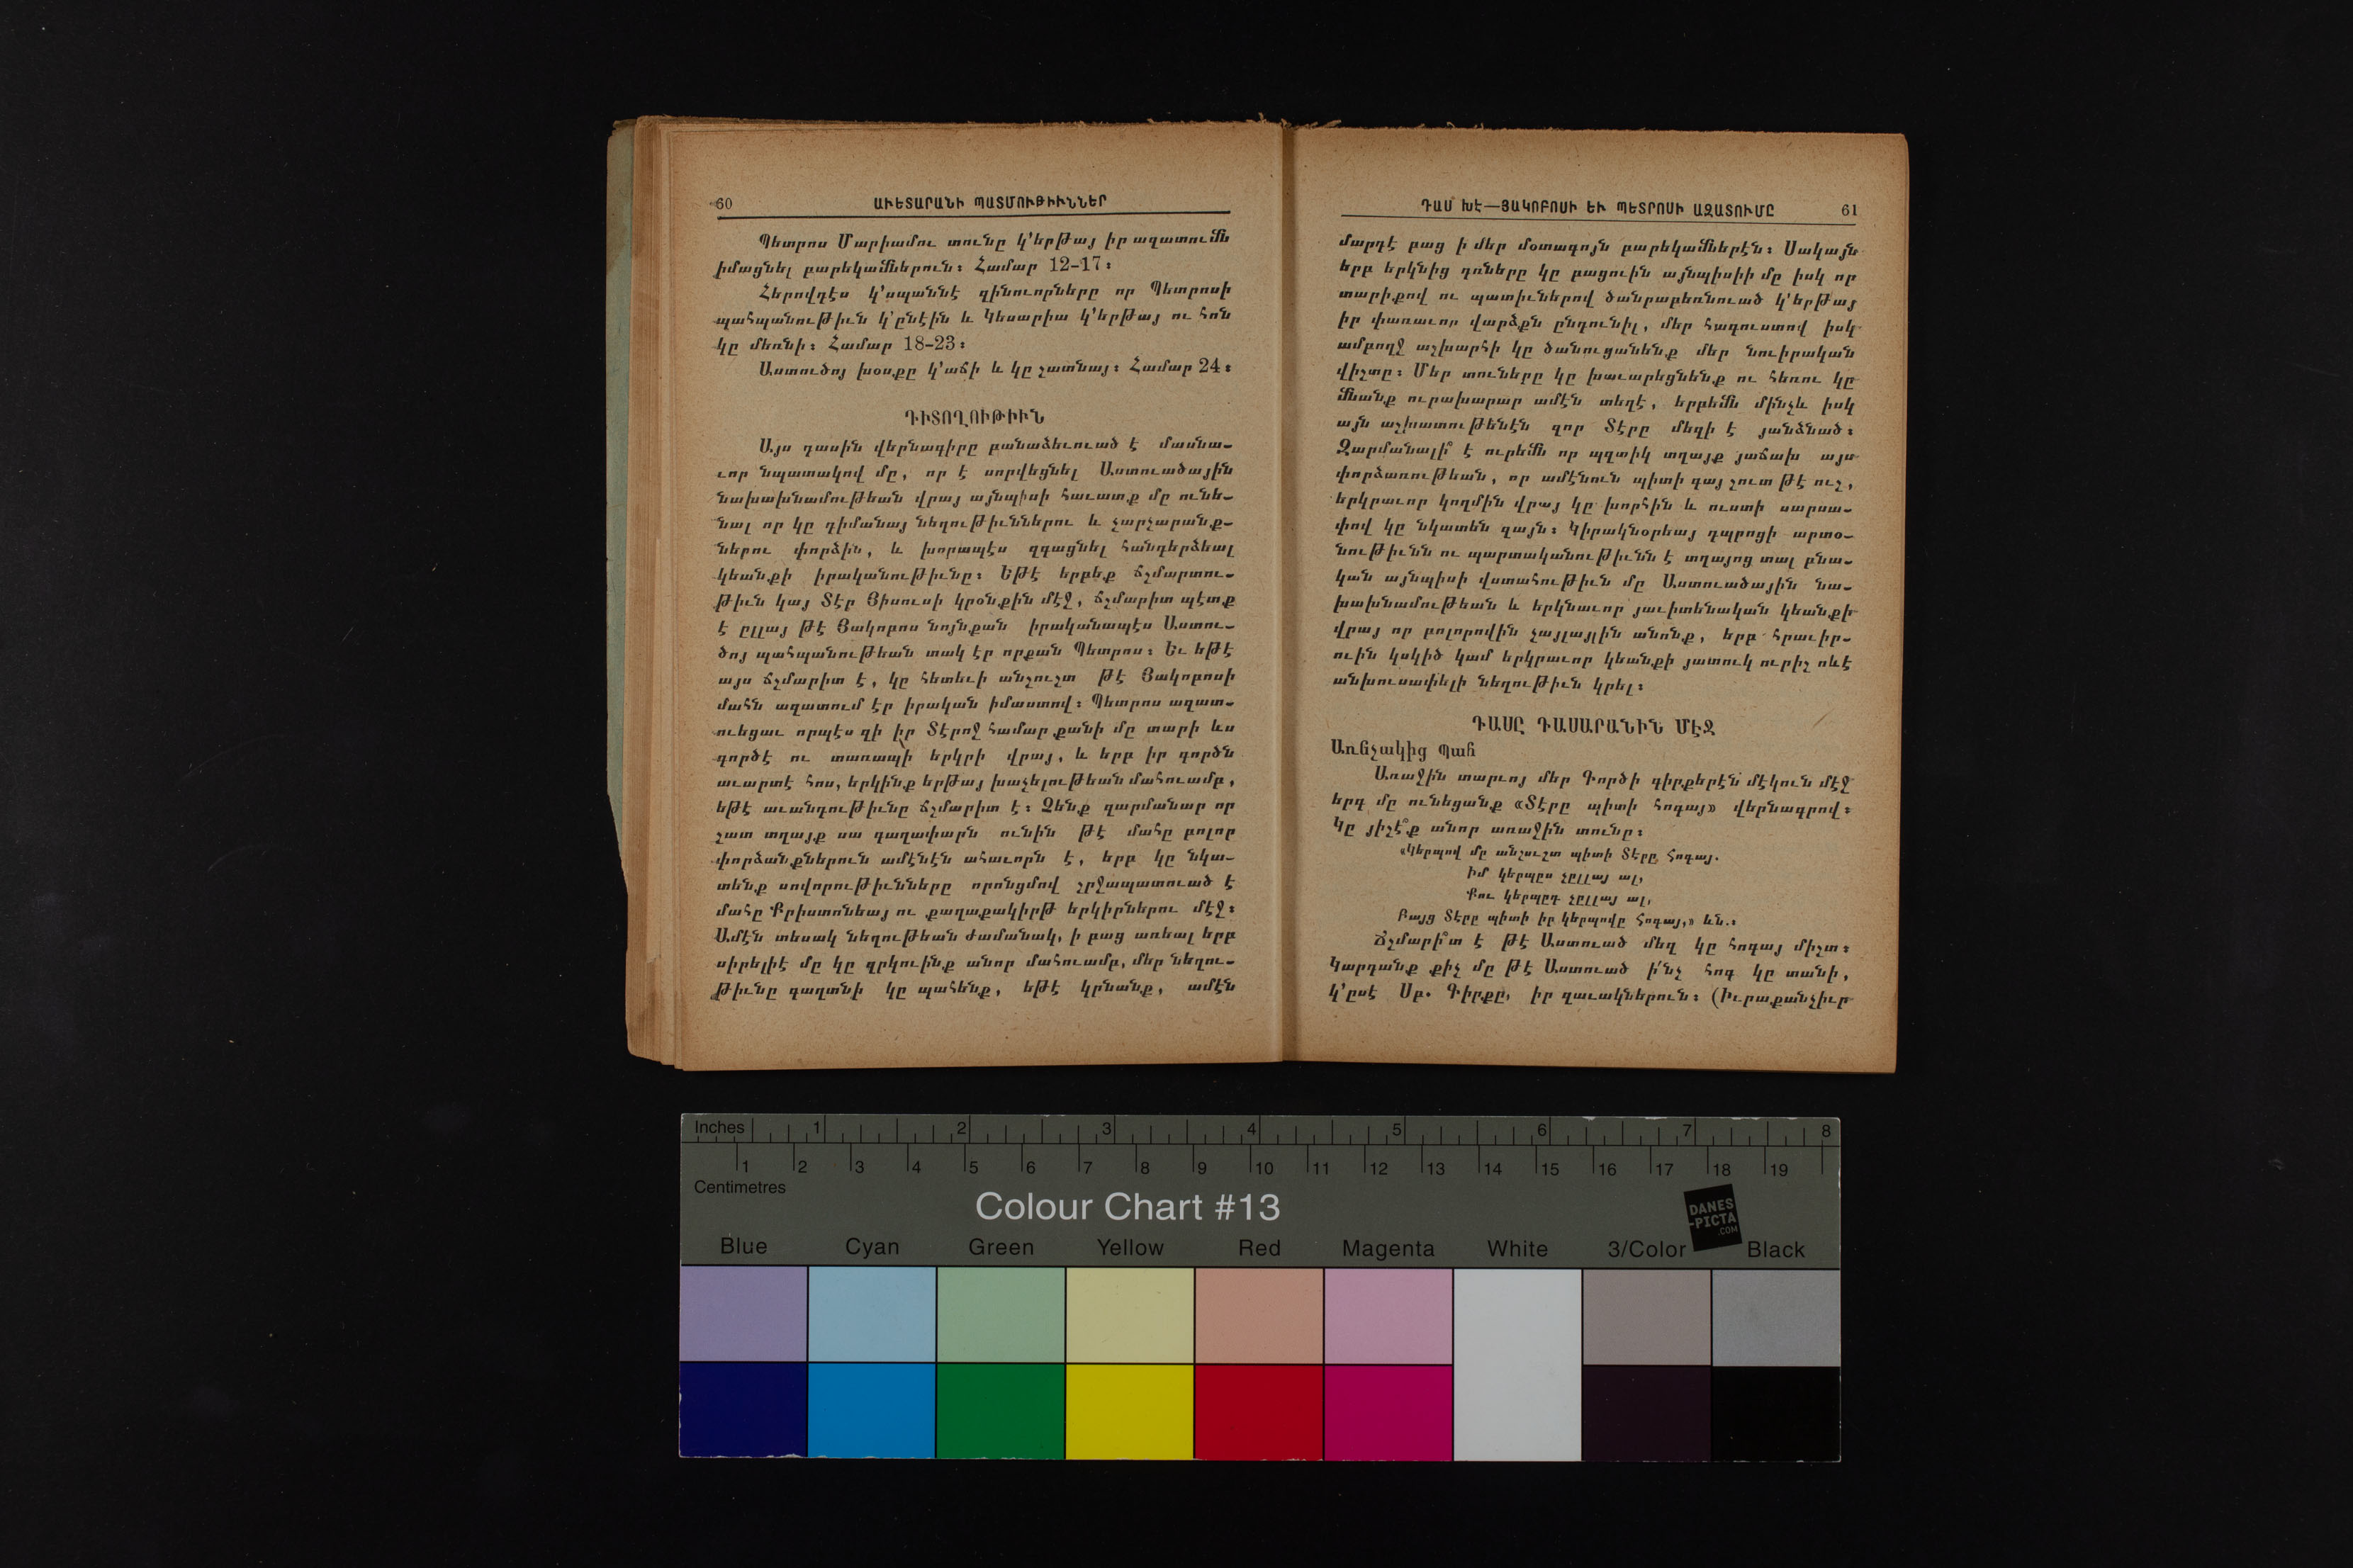 60 ԱՒԵՏԱՐԱՆԻ ՊԱՏՄՈՒԹԻՒՆՆԵՐ
Պետրոս Մարիամու տունը կ՚երթայ իր ազատումն
իմացնել բարեկամներուն։ Համար 12-17։
Հերովդէս կ՚սպաննէ զինուորները որ Պետրոսի
պահպանութիւն կ՚ընէին և Կեսարիա կ՚երթայ ու հոն
կը մեռնի։ Համար 18-23։
Աստուծոյ խօսքը կ՚աճի և կը շատնայ։ Համար 24։
ԴԻՏՈՂՈՒԹԻՒՆ
Այս դասին վերնագիրը բանաձեւուած է մասնա-
ւոր նպատակով մը, որ է սորվեցնել Աստուածային
նախախնամութեան վրայ այնպիսի հաւատք մը ունե-
նալ որ կը դիմանայ նեղութիւններու և չարչարանք-
ներու փորձին, և խորապէս զգացնել հանդերձեալ
կեանքի իրականութիւնը։ Եթէ երբեք ճշմարտու-
թիւն կայ Տէր Յիսուսի կրօնքին մէջ, ճշմարիտ պէտք
է ըլլայ թէ Յակոբոս նոյնքան իրականապէս Աստու-
ծոյ պահպանութեան տակ էր որքան Պետրոս։ Եւ եթէ
այս ճշմարիտ է, կը հետեւի անշուշտ թէ Յակոբոսի
մահն ազատում էր իրական իմաստով։ Պետրոս ազատ-
ուեցաւ որպէս զի իր Տէրոջ համար քանի մը տարի ևս
գործէ ու տառապի երկրի վրայ, և երբ իր գործն
աւարտէ հոս, երկինք երթայ խաչելութեան մահուամբ,
եթէ աւանդութիւնը ճշմարիտ է։ Չենք զարմանար որ
շատ տղայք սա գաղափարն ունին թէ մահը բոլոր
փորձանքներուն ամէնէն ահաւորն է, երբ կը նկա-
տենք սովորութիւնները որոնցմով շրջապատուած է
մահը Քրիստոնեայ ու քաղաքակիրթ երկիրներու մէջ։
Ամէն տեսակ նեղութեան ժամանակ, ի բաց առեալ երբ
սիրելիէ մը կը զրկուինք անոր մահուամբ, մեր նեղու-
թիւնը գաղտնի կը պահենք, եթէ կրնանք, ամէն
ԴԱՍ ԽԷ—ՅԱԿՈԲՈՍԻ ԵՒ ՊԵՏՐՈՍԻ ԱԶԱՏՈՒՄԸ 61
մարդէ բաց ի մեր մօտագոյն բարեկամներէն։ Սակայն
երբ երկնից դռները կը բացուին այնպիսիի մը իսկ որ
տարիքով ու պատիւներով ծանրաբեռնուած կ՚երթայ
իր փառաւոր վարձքն ընդունիլ, մեր հագուստով իսկ
ամբողջ աշխարհի կը ծանուցանենք մեր նուիրական
վիշտը։ Մեր տուները կը խաւարեցնենք ու հեռու կը
մնանք ուրախարար ամէն տեղէ, երբեմն մինչև իսկ
այն աշխատութենէն զոր Տէրը մեզի է յանձնած։
Զարմանալի՞ է ուրեմն որ պզտիկ տղայք յաճախ այս
փորձառութեան, որ ամէնուն պիտի գայ շուտ թէ ուշ,
երկրաւոր կողմին վրայ կը խորհին և ուստի սարսա-
փով կը նկատեն զայն։ Կիրակնօրեայ դպրոցի արտօ-
նութիւնն ու պարտականութիւնն է տղայոց տալ բնա-
կան այնպիսի վստահութիւն մը Աստուածային նա-
խախնամութեան և երկնաւոր յաւիտենական կեանքի
վրայ որ բոլորովին չայլայլին անոնք, երբ հրաւիր-
ուին կսկիծ կամ երկրաւոր կեանքի յատուկ ուրիշ ոևէ
անխուսափելի նեղութիւն կրել։
ԴԱՍԸ ԴԱՍԱՐԱՆԻՆ ՄԷՋ
Առնչակից Պահ
Առաջին տարւոյ մեր Գործի գիրքերէն մէկուն մէջ
երգ մը ունեցանք «Տէրը պիտի հոգայ» վերնագրով։
Կը յիշէ՞ք անոր առաջին տունը։
«Կերպով մը անշուշտ պիտի Տէրը հոգայ.
Իմ կերպըս չըլլայ ալ,
Քու կերպըդ չըլլայ ալ,
Բայց Տէրը պիտի իր կերպովը հոգայ,» ևն.։
Ճշմարի՞տ է թէ Աստուած մեղ կը հոգայ միշտ։
Կարդանք քիչ մը թէ Աստուած ի՛նչ հոգ կը տանի,
կ՚ըսէ Սբ. Գիրքը, իր զաւակներուն։ (Իւրաքանչիւր
Inches 1 2 3 4 5 6 7 8
1 2 3 4 5 6 7 8 9 10 11 12 13 14 15 16 17 18 19
Centimetres
Colour Chart #13
DANES
-PICTA
.COM
Blue Cyan Green Yellow Red Magenta White 3/Color Black